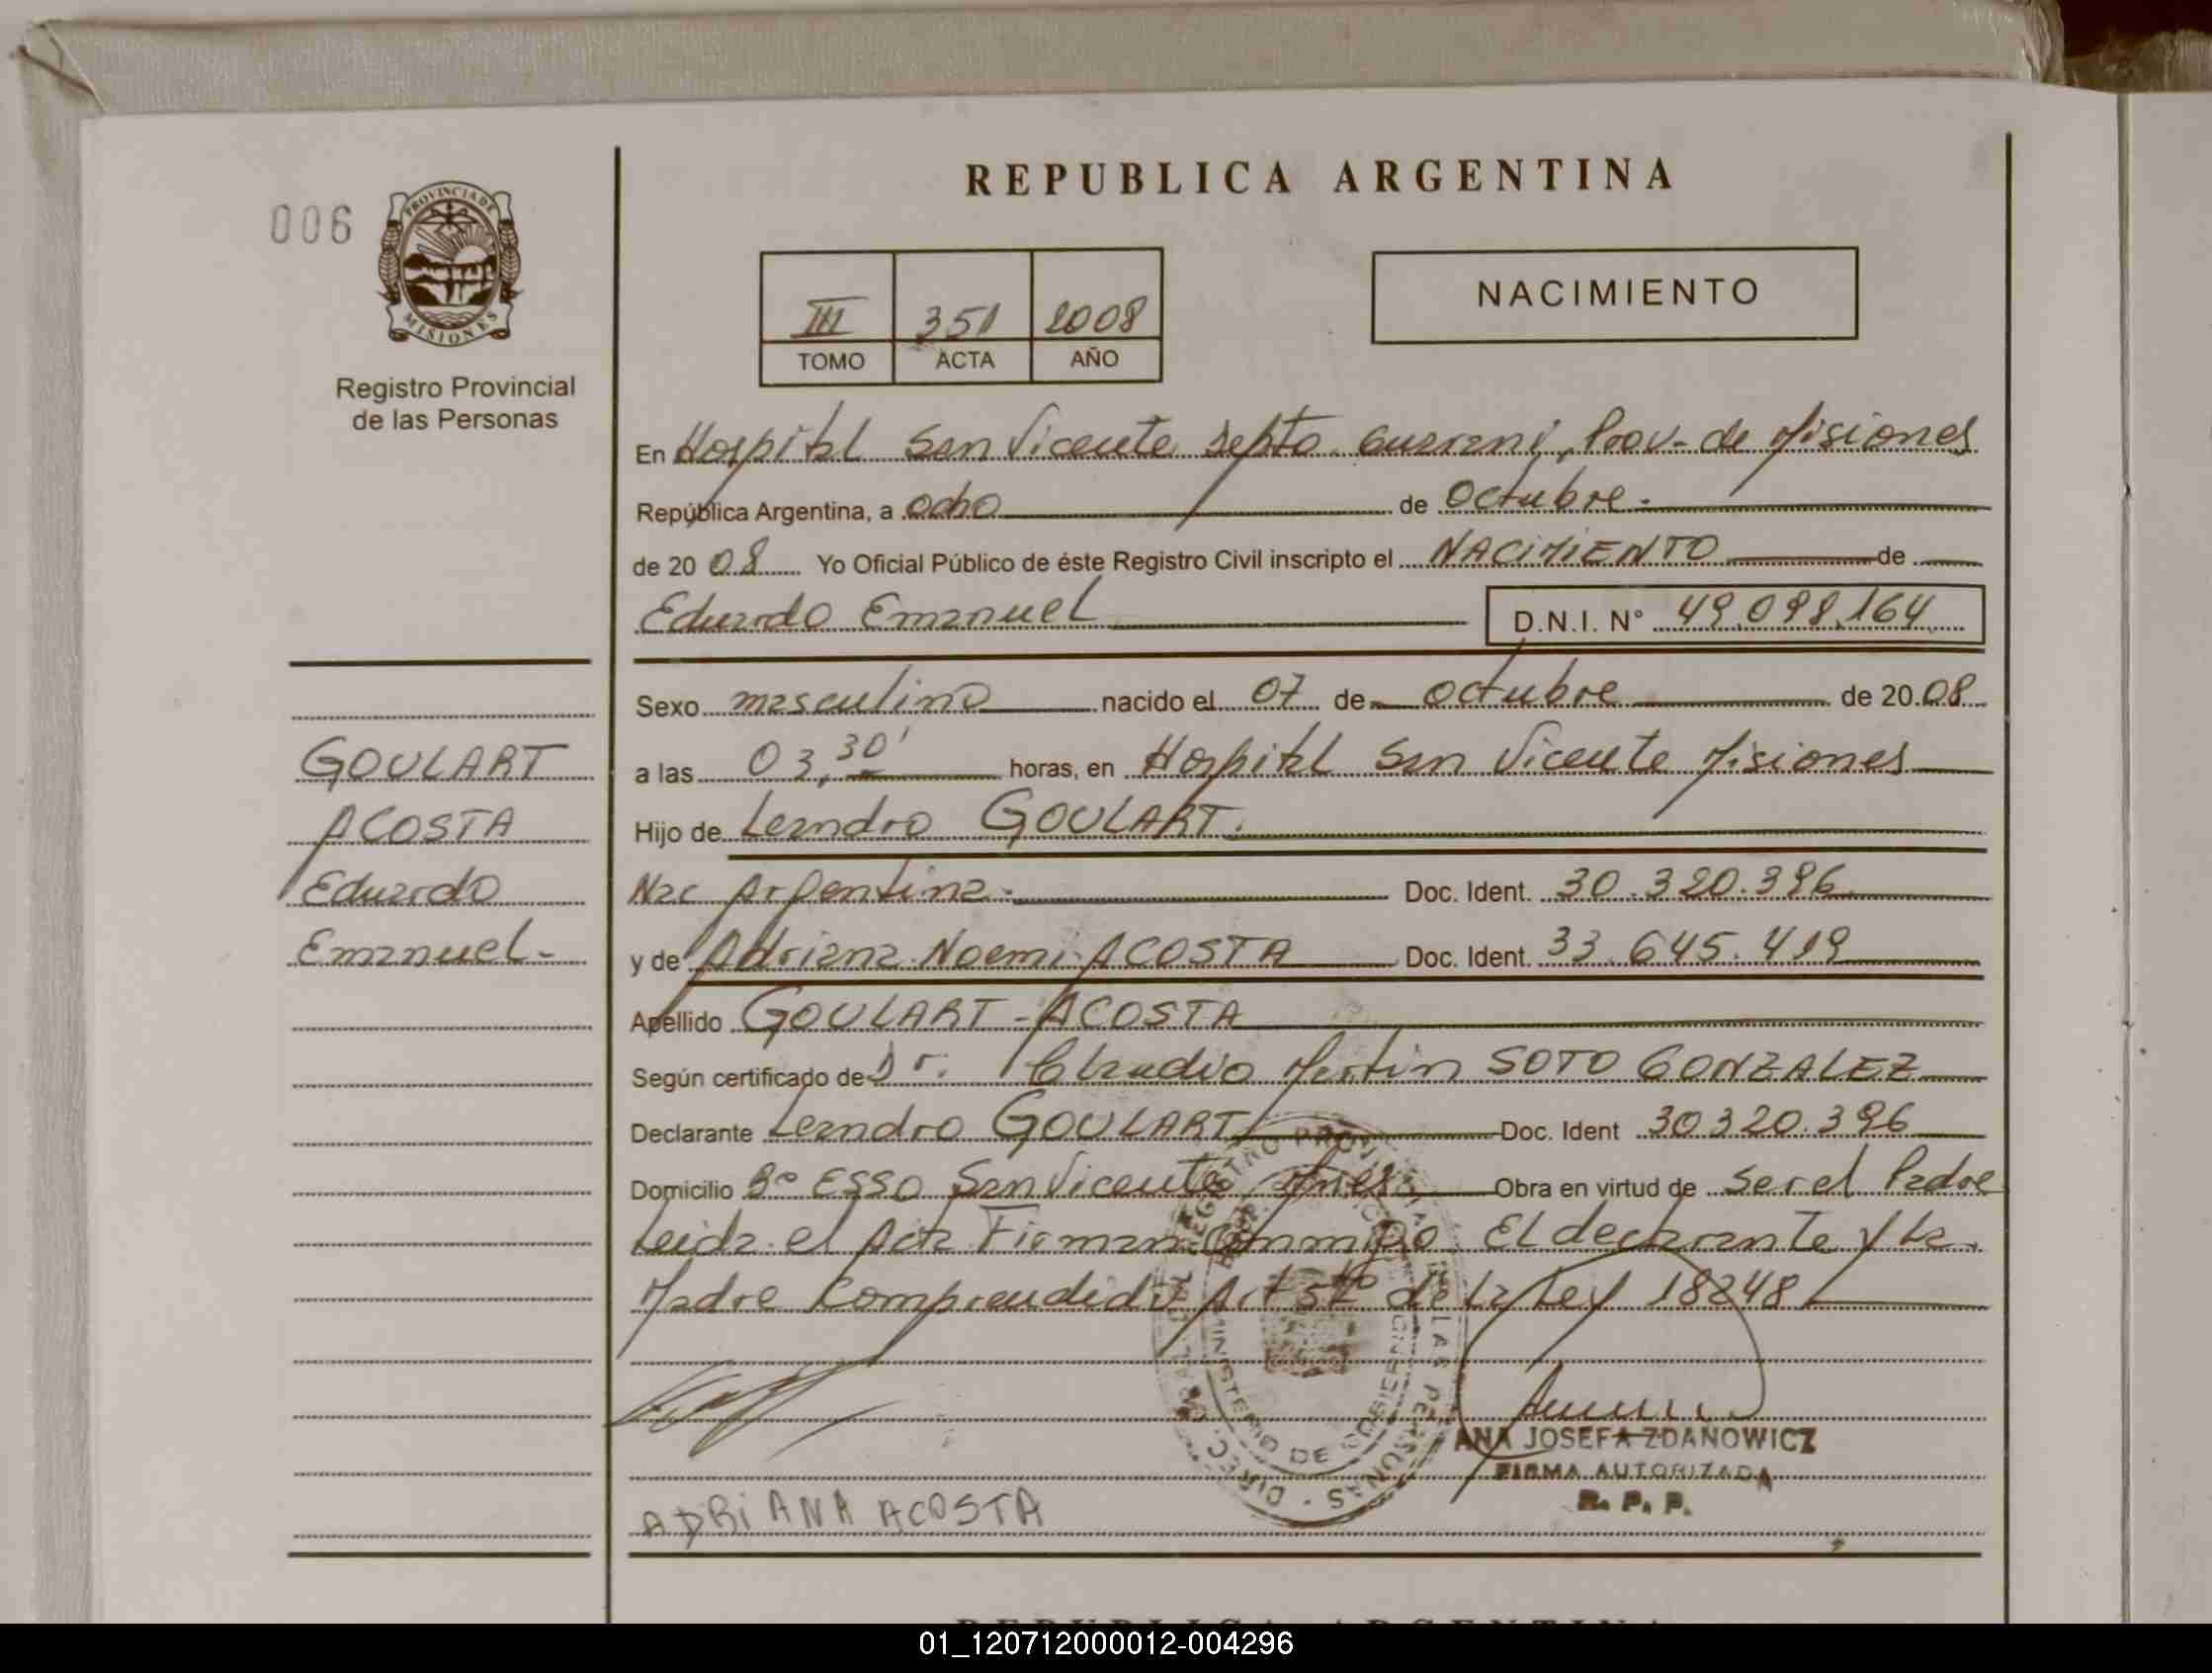 REPUBLICA ARGENTINA
006
PROVINCIA DE
MISIONES
Registro Provincial
de las Personas
III 351 2008
TOMO ACTA AÑO
NACIMIENTO
En Hospital San Vicente Depto. Guarani, Prov. de Misiones
República Argentina, a ocho de Octubre.
de 2008 Yo Oficial Público de éste Registro Civil inscripto el NACIMIENTO de
Eduardo Emanuel D.N.I. N° 49.098.164
Sexo masculino nacido el 07 de octubre de 2008
a las 03,30' horas, en Hospital San Vicente Misiones
Hijo de Leandro GOULART.
Nac Argentina. Doc. Ident. 30.320.396
y de Adriana Noemi ACOSTA Doc. Ident. 33.645.419
Apellido GOULART - ACOSTA
Según certificado de Dr. Claudio Martin SOTO GONZALEZ
Declarante Leandro GOULART Doc. Ident 30320.396
Domicilio Bº ESSO San Vicente Mnes. Obra en virtud de ser el Padre
Leida el Acta Firman Conmigo El declarante y La
Madre Comprendido Art 5to de la Ley 18248
GOULART
ACOSTA
Eduardo
Emanuel-
DIREC. GRAL. DEL REGISTRO PROVINCIAL DE LAS PERSONAS
MINISTERIO DE GOBIERNO
ANA JOSEFA ZDANOWICZ
FIRMA AUTORIZADA
R. P. P.
ADRIANA ACOSTA
REPUBLICA ARGENTINA
01_120712000012-004296